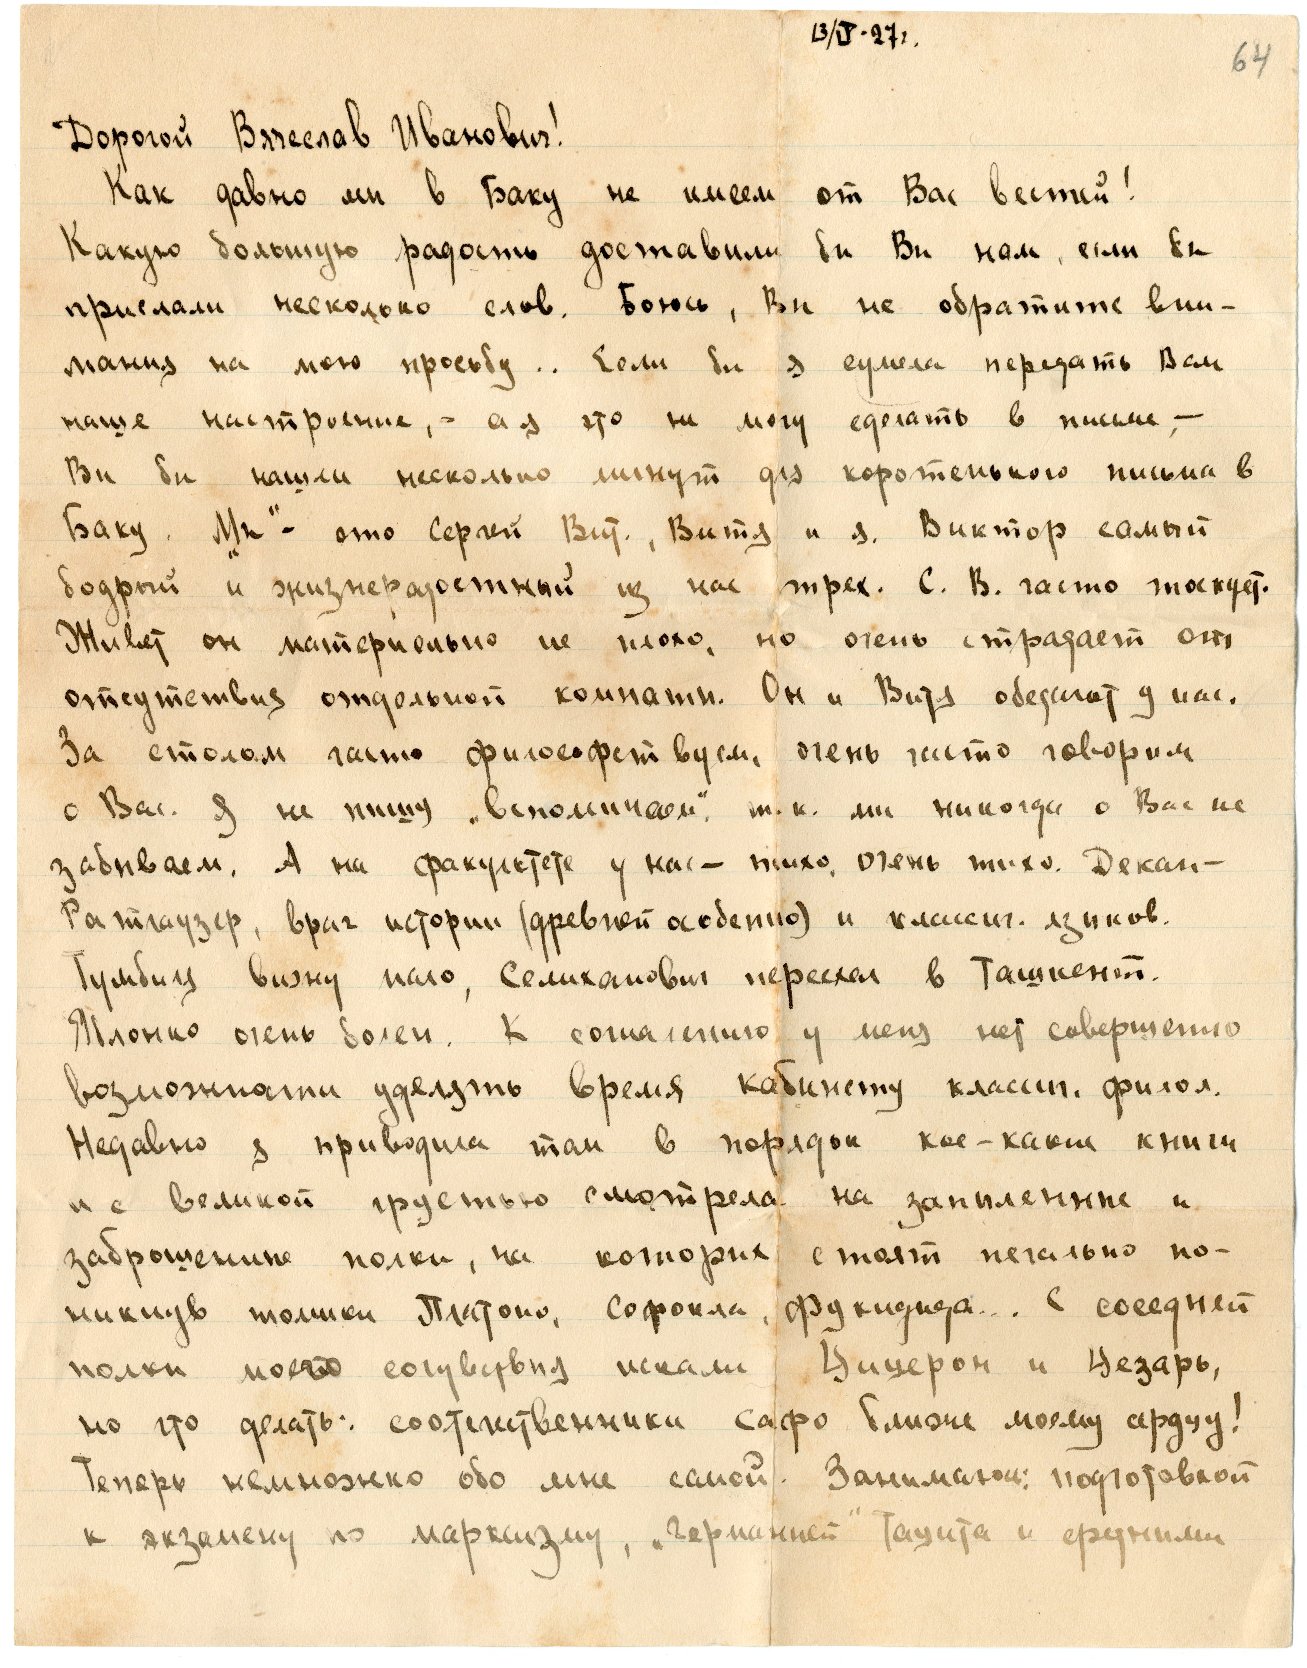 13/IV-27г.
64
Дорогой Вячеслав Иванович!
Как давно мы в Баку не имеем от Вас вестей!
Какую большую радость доставили бы Вы нам, если бы
прислали несколько слов. Боюсь, Вы не обратите вни-
мания на мою просьбу.. Если бы я сумела передать Вам
наше настроение, - а я это не могу сделать в письме, -
Вы бы нашли несколько минут для коротенького письма в
Баку. „Мы" - это Сергей Вит., Витя и я. Виктор самый
бодрый и жизнерадостный из нас трех. С. В. часто тоскует.
Живет он материально не плохо, но очень страдает от
отсутствия отдельной комнаты. Он и Витя обедают у нас.
За столом часто философствуем, очень часто говорим
о Вас. Я не пишу „вспоминаем", т. к. мы никогда о Вас не
забываем. А на факультете у нас - тихо, очень тихо. Декан -
Ратгаузер, враг истории (древней особенно) и классич. языков.
Гумбиц вижу мало, Селиханович переехал в Ташкент.
Томко очень болен. К сожалению у меня нет совершенно
возможности уделять время кабинету классич. филол.
Недавно я приводила там в порядок кое-какие книги
и с великой грустью смотрела на запыленные и
заброшенные полки, на которых стоят печально по-
никнув томики Платона, Софокла, Фукидида... С соседней
полки моего сочувствия искали Цицерон и Цезарь,
но что делать: соотечественники Сафо ближе моему сердцу!
Теперь немножко обо мне самой. Занимаюсь подготовкой
к экзамену по марксизму, „Германией" Тацита и